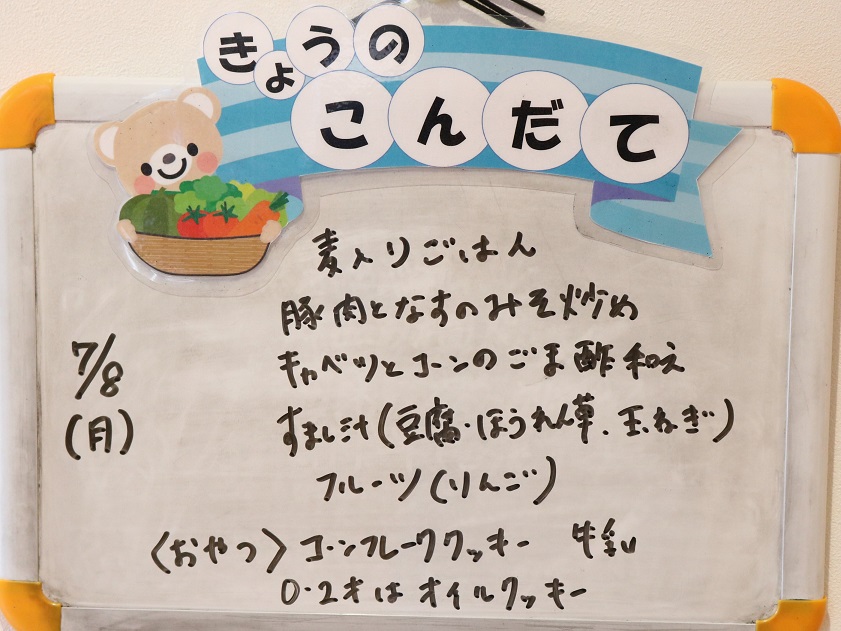 きょうの
こんだて
麦入りごはん
豚肉となすのみそ炒め
7/8
キャベツとコーンのごま酢和え
(月)
すまし汁(豆腐・ほうれん草、玉ねぎ)
フルーツ(りんご)
〈おやつ〉コーンフレーククッキー 牛乳
0・2才はオイルクッキー